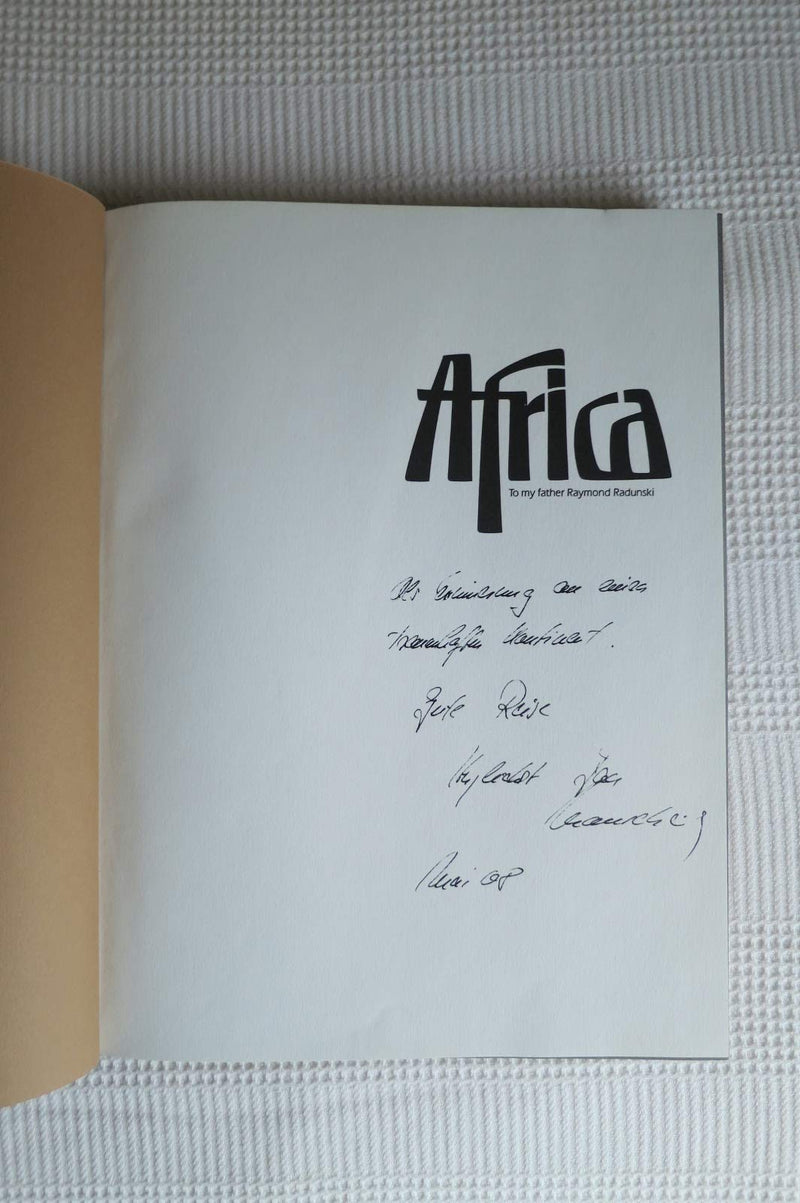 Africa
To my father Raymond Radunski
Als Erinnerung an einen
traumhaften Kontinent.
Gute Reise
Mai 08